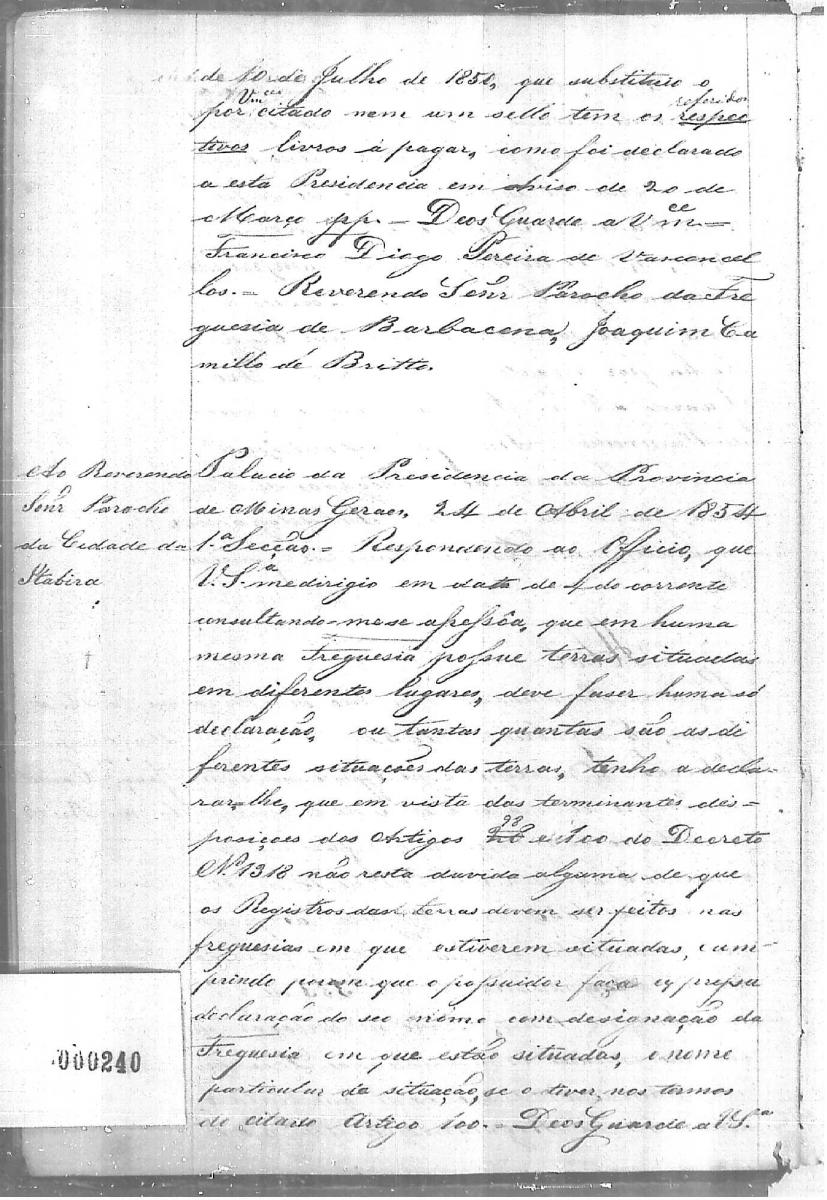 de 10 de Julho de 1850, que substituio o
Vmces referidos
por citado nem um sello tem os respec
tivos livros á pagar, como foi declarado
a esta Presidencia em Aviso de 20 de
Março pp. = Deos Guarde a Vmce =
Francisco Diogo Pereira de Vasconcel
los. = Reverendo Senr Parocho da Fre
guesia de Barbacena, Joaquim Ca
millo de Britto.
Ao Reverendo
Senr Parocho
da Cidade da
Itabira
Palacio da Presidencia da Provincia
de Minas Geraes, 24 de Abril de 1854
1.ª Secção. = Respondendo ao Officio, que
V. S.ª me dirigio em data de 4 do corrente
consultando-me se apessôa, que em huma
mesma Freguesia possue terras situadas
em diferentes lugares, deve faser huma só
declaração, ou tantas quantas são as di
ferentes situações das terras, tenho a decla-
rar-lhe, que em vista das terminantes dis=
posições dos Artigos 98 e 100 do Decreto
Nº 1318 não resta duvida alguma de que
os Registros das terras devem ser feitos nas
freguesias em que estiverem situadas, cum-
prindo porem que o possuidor faça expressa
declaração do seo nome com designação da
Freguesia em que estão situadas, o nome
particular da situação, se o tiver, nos termos
do citado Artigo 100. = Deos Guarde a V. S.ª
000240